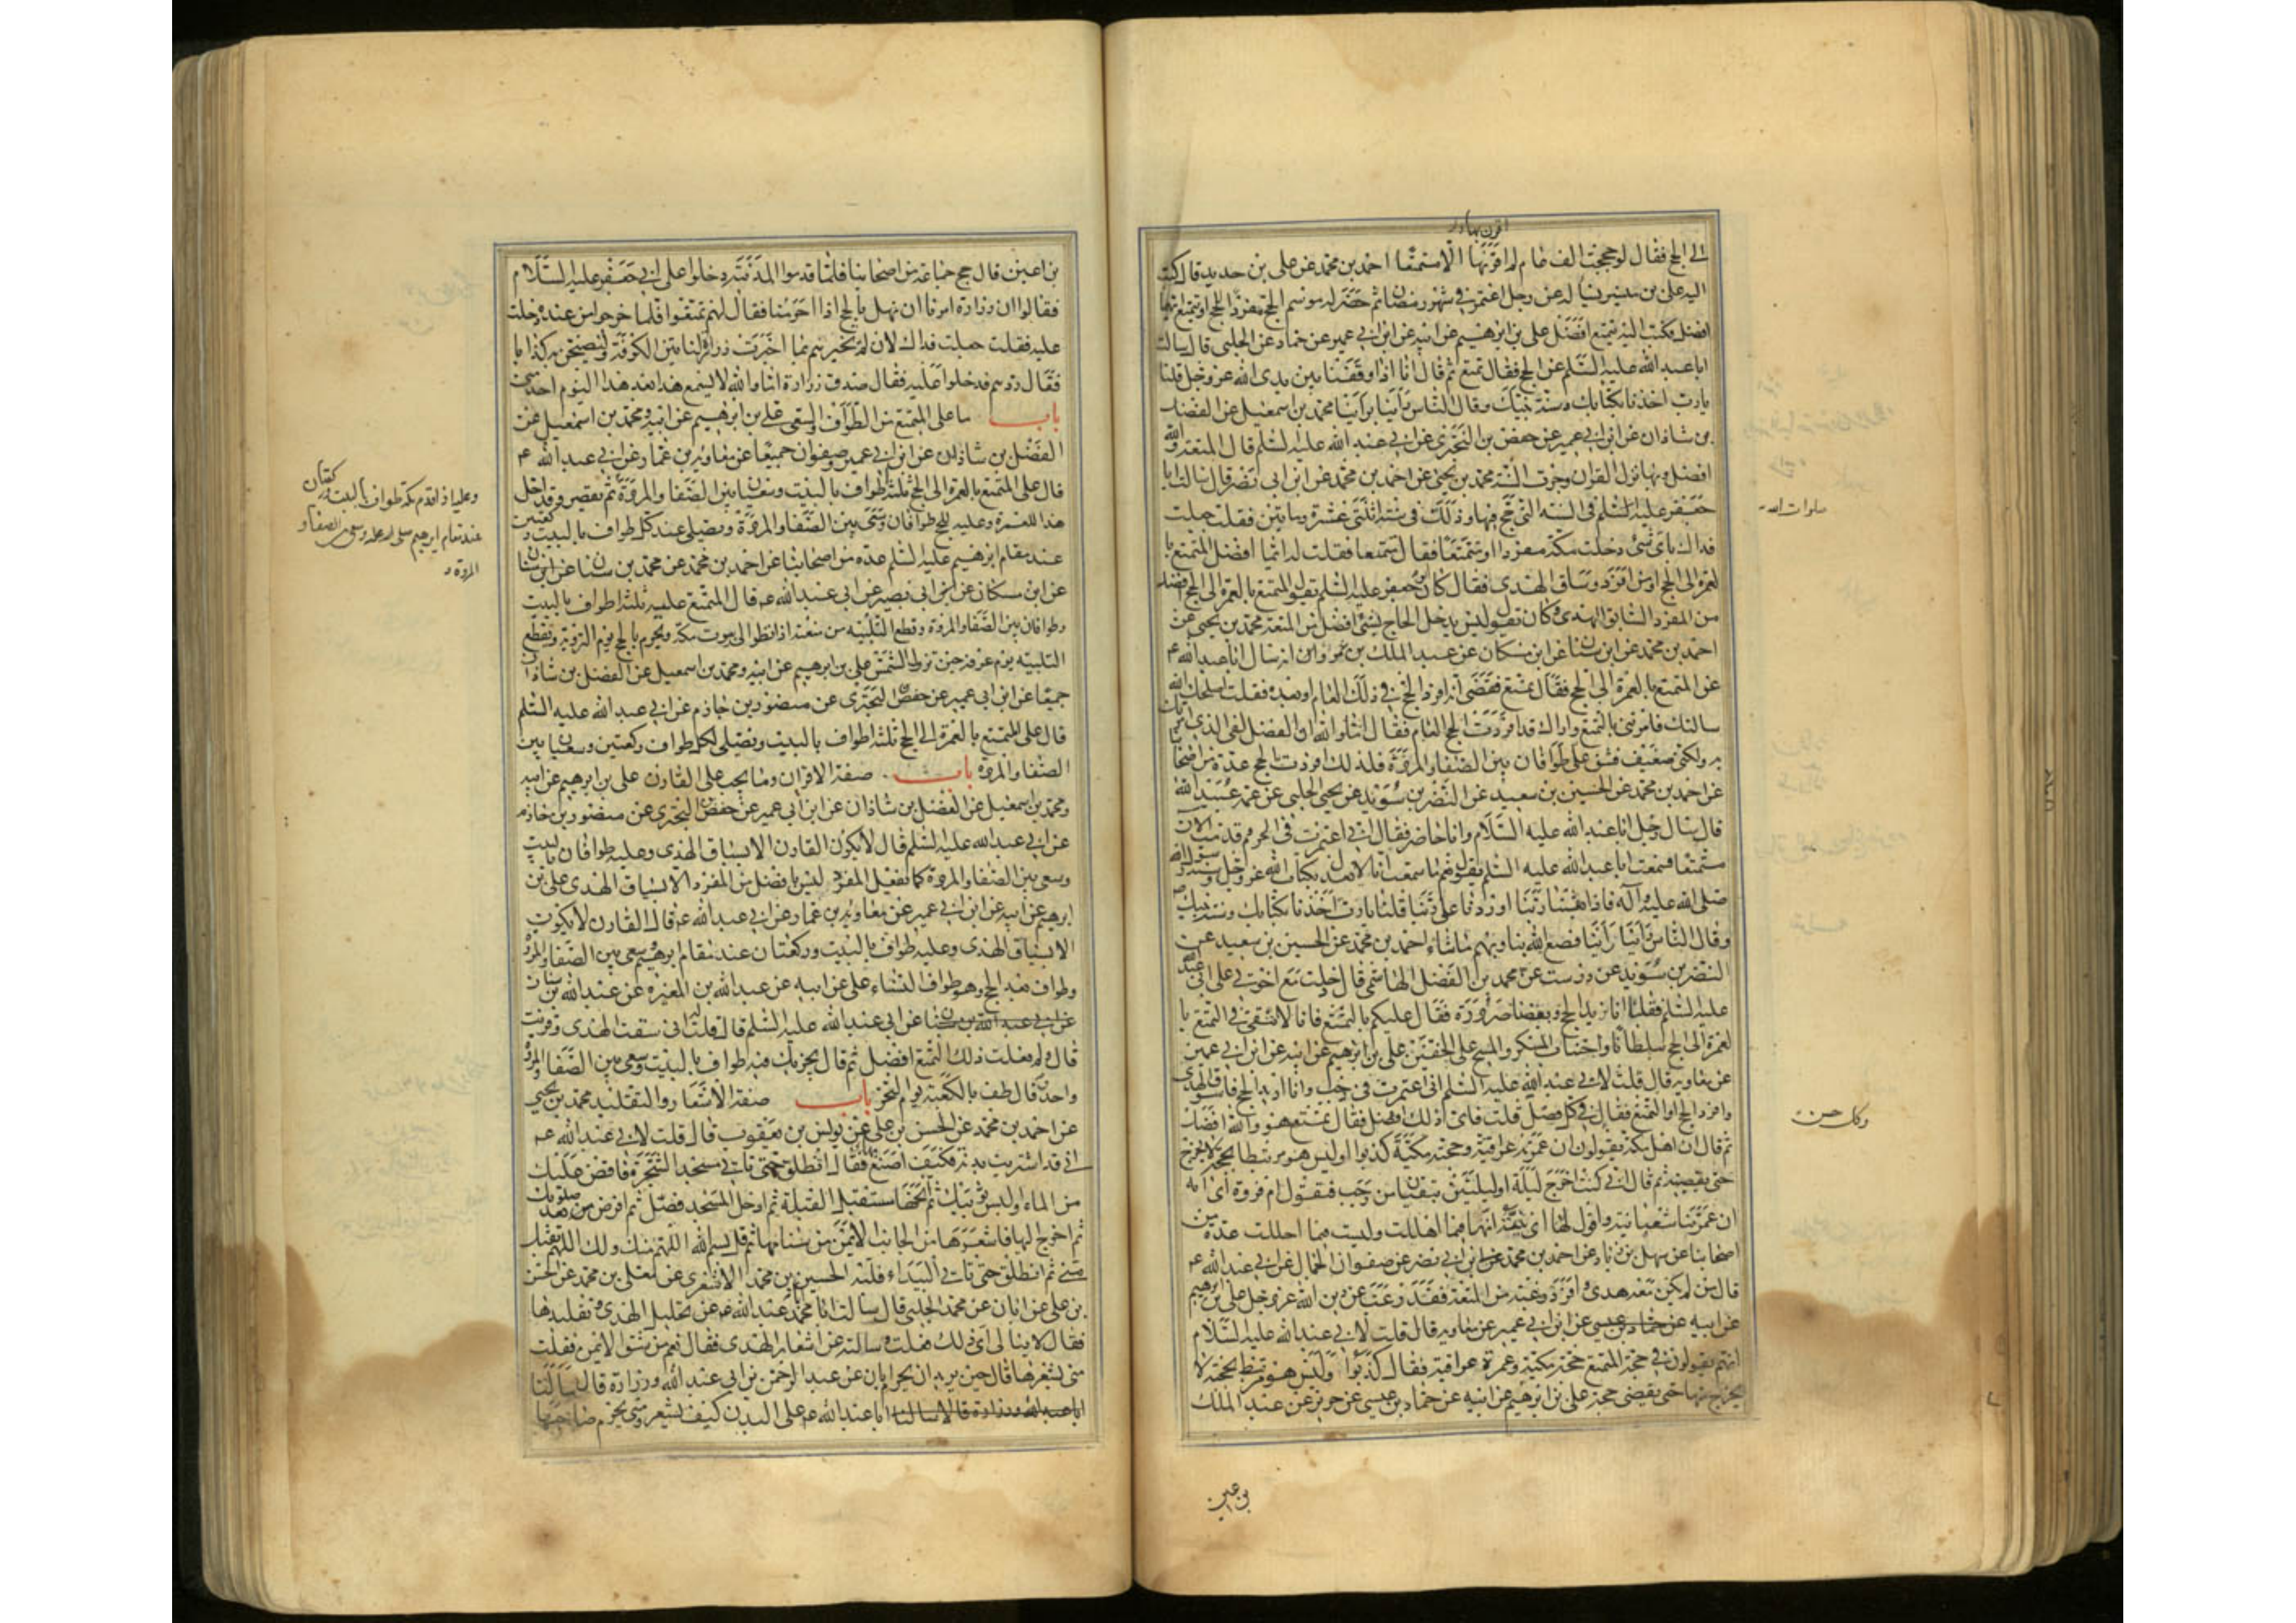 اقرن بها ذلك
الى الحج فقال لو حججت الف عام لم اقرنها الا متمتعا احمد بن محمد عن علي بن حديد قال كتب
اليه علي بن ميسر يسأله عن رجل اعتمر في شهر رمضان ثم حضر له موسم الحج مفردا للحج او يتمتع ايهما
افضل فكتب اليه يتمتع افضل علي بن ابرهيم عن ابيه عن ابن ابي عمير عن حماد عن الحلبي قال سالت
ابا عبد الله عليه السلم عن الحج فقال تمتع ثم قال انا اذا وقفنا بين يدي الله عز وجل قلنا
يا رب اخذنا بكتابك وسنة نبيك وقال الناس رأينا برأينا محمد بن اسمعيل عن الفضل
بن شاذان عن ابن ابي عمير عن حفص بن البختري عن ابي عبد الله عليه السلم قال المتعة والله
افضل وبها نزل القران وجرت السنة محمد بن يحيى عن احمد بن محمد عن ابن ابي نصر قال سالت ابا
جعفر عليه السلم في السنة التي حج فيها وذلك في سنة اثنتي عشرة وماتين فقلت جعلت
صلوات الله
فداك باي شيء دخلت مكة مفردا او متمتعا فقال متمتعا فقلت له ايما افضل المتمتع با
لعمرة الى الحج او من افرد وساق الهدى فقال كان ابو جعفر عليه السلم يقول المتمتع بالعمرة الى الحج افضل
من المفرد السابق الهدى وكان يقول ليس يدخل الحاج بشيء افضل من المتعة محمد بن يحيى عن
احمد بن محمد عن ابن سنان عن ابن مسكان عن عبد الملك بن عمرو انه سال ابا عبد الله ع
عن المتمتع بالعمرة الى الحج فقال تمتع فقضى انه افرد الحج في ذلك العام او بعده فقلت اصلحك الله
سالتك فامرتني بالتمتع واراك قد افردت الحج العام فقال اما والله ان الفضل لفي الذي امرتك
به ولكني ضعيف فشق علي طوافان بين الصفا والمروة فلذلك افردت الحج عدة من اصحابنا
عن احمد بن محمد عن الحسين بن سعيد عن النضر بن سويد عن يحيى الحلبي عن عمه عبيد الله
قال سال رجل ابا عبد الله عليه السلام وانا حاضر فقال اني اعتمرت في الحرم وقدمت الان
متمتعا فسمعت ابا عبد الله عليه السلم يقول نعم ما صنعت انا لا نعدل بكتاب الله عز وجل وسنة رسول الله
صلى الله عليه وآله فاذا بعثنا ربنا او وردنا على ربنا قلنا يا رب اخذنا بكتابك وسنة نبيك ص
وقال الناس رأينا رأينا فصنع الله بنا وبهم ما شاء احمد بن محمد عن الحسين بن سعيد عن
النضر بن سويد عن درست عن محمد بن الفضل الهاشمي قال دخلت مع اخوتي على ابي عبد الله
عليه السلم فقلنا انا نريد الحج وبعضنا صرورة فقال عليكم بالتمتع فانا لا نتقي في التمتع با
لعمرة الى الحج سلطانا واجتناب المسكر والمسح على الخفين علي بن ابرهيم عن ابيه عن ابن ابي عمير
عن معاوية قال قلت لابي عبد الله عليه السلم اني اعتمرت في رجب وانا اريد الحج فاسوق الهدى
وافرد الحج او اتمتع فقال في كل فضل قلت فاي ذلك افضل فقال تمتع هو والله افضل
وكل حسن
ثم قال ان اهل مكة يقولون ان عمرته عراقية وحجته مكية كذبوا اوليس هو مرتبطا بحجه لا يخرج
حتى يقضيه ثم قال اني كنت اخرج ليلة او ليلتين تبقيان من رجب فتقول ام فروة اي ابه
ان عمرتنا شعبانية واقول لها اي بنية انها فيما اهللت وليست فيما احللت عدة من
اصحابنا عن سهل بن زياد عن احمد بن محمد بن ابي نصر عن صفوان الجمال عن ابي عبد الله ع
قال من لم يكن معه هدى وافرد رغبة عن المتعة فقد رغب عن دين الله عز وجل علي بن ابرهيم
عن ابيه عن حماد بن عيسى عن ابن ابي عمير عن معاوية قال قلت لابي عبد الله عليه السلام
انهم يقولون في حجة المتمتع حجة مكية وعمرة عراقية فقال كذبوا وليس هو مرتبط بحجته لا
يخرج منها حتى يقضي حجته علي بن ابرهيم عن ابيه عن حماد بن عيسى عن حريز عن عبد الملك
بن اعين
بن اعين قال حج جماعة من اصحابنا فلما قدموا المدينة دخلوا على ابي جعفر عليه السلام
فقالوا ان زرارة امرنا ان نهل بالحج اذا احرمنا فقال لهم تمتعوا فلما خرجوا من عنده دخلت
عليه فقلت جعلت فداك لان لم تخبرهم بما اخبرت زرارة لناتين الكوفة ولنصبحن به كذابا
فقال ردهم فدخلوا عليه فقال صدق زرارة اما والله لا يسمع هذا بعد هذا اليوم احد مني
باب ما على المتمتع من الطواف والسعي علي بن ابرهيم عن ابيه ومحمد بن اسمعيل عن
الفضل بن شاذان عن ابن ابي عمير وصفوان جميعا عن معاوية بن عمار عن ابي عبد الله ع
قال على المتمتع بالعمرة الى الحج ثلثة اطواف بالبيت وسعيان بين الصفا والمروة
وعليه اذا قدم مكة طواف بالبيت وركعتان
عند مقام ابرهيم صلى الله عليه وسعى بين الصفا و
المروة
ثم يقصر وقد احل
هذا للعمرة وعليه للحج طوافان وسعى بين الصفا والمروة ويصلي عند كل طواف بالبيت ركعتين
عند مقام ابرهيم عليه السلم عدة من اصحابنا عن احمد بن محمد عن محمد بن سنان
عن ابن مسكان عن ابي بصير عن ابي عبد الله ع قال المتمتع عليه ثلثة اطواف بالبيت
وطوافان بين الصفا والمروة وقطع التلبية من متعته اذا نظر الى بيوت مكة ويحرم بالحج يوم التروية ويقطع
التلبية يوم عرفة حين تزول الشمس علي بن ابرهيم عن ابيه ومحمد بن اسمعيل عن الفضل بن شاذان
جميعا عن ابن ابي عمير عن حفص البختري عن منصور بن حازم عن ابي عبد الله عليه السلم
قال على المتمتع بالعمرة الى الحج ثلثة اطواف بالبيت ويصلي لكل طواف ركعتين وسعيان بين
الصفا والمروة باب صفة الاقران وما يجب على القارن علي بن ابرهيم عن ابيه
ومحمد بن اسمعيل عن الفضل بن شاذان عن ابن ابي عمير عن حفص البختري عن منصور بن حازم
عن ابي عبد الله عليه السلم قال لا يكون القارن الا بسياق الهدى وعليه طوافان بالبيت
وسعى بين الصفا والمروة كما يفعل المفرد ليس بافضل من المفرد الا بسياق الهدى علي بن
ابرهيم عن ابيه عن ابن ابي عمير عن معاوية بن عمار عن ابي عبد الله ع قال القارن لا يكون
الا بسياق الهدى وعليه طواف بالبيت وركعتان عند مقام ابرهيم وسعى بين الصفا والمروة
وطواف بعد الحج وهو طواف النساء علي عن ابيه عن عبد الله بن المغيرة عن عبد الله بن سنان
عن ابي عبد الله عليه السلم قال قلت له اني سقت الهدى وقرنت
قال ولم فعلت ذلك التمتع افضل ثم قال يجزيك فيه طواف بالبيت وسعى بين الصفا والمروة
واحد وقال طف بالكعبة يوم النحر باب صفة الاشعار والتقليد محمد بن يحيى
عن احمد بن محمد عن الحسن بن علي عن يونس بن يعقوب قال قلت لابي عبد الله ع
اني قد اشتريت بدنة فكيف اصنع بها فقال انطلق حتى تاتي مسجد الشجرة فافض عليك
من الماء والبس ثوبيك ثم انخها مستقبل القبلة ثم ادخل المسجد فصل ثم افرض بعد صلوتك
ثم اخرج اليها فاشعرها من الجانب الايمن من سنامها ثم قل بسم الله اللهم منك ولك اللهم تقبل
مني ثم انطلق حتى تاتي البيداء فلبه الحسين بن محمد الاشعري عن معلى بن محمد عن الحسن
بن علي عن ابان عن محمد الحلبي قال سالت ابا عبد الله ع عن تجليل الهدى وتقليدها
فقال لا تبالي اي ذلك فعلت وسالته عن اشعار الهدى فقال نعم من الشق الايمن فقلت
متى نشعرها قال حين يريد ان يحرم ابان عن عبد الرحمن بن ابي عبد الله وزرارة قال سالنا
ابا عبد الله وزرارة قالا سالنا ابا عبد الله ع على البدن كيف تشعر ومتى يحرم صاحبها